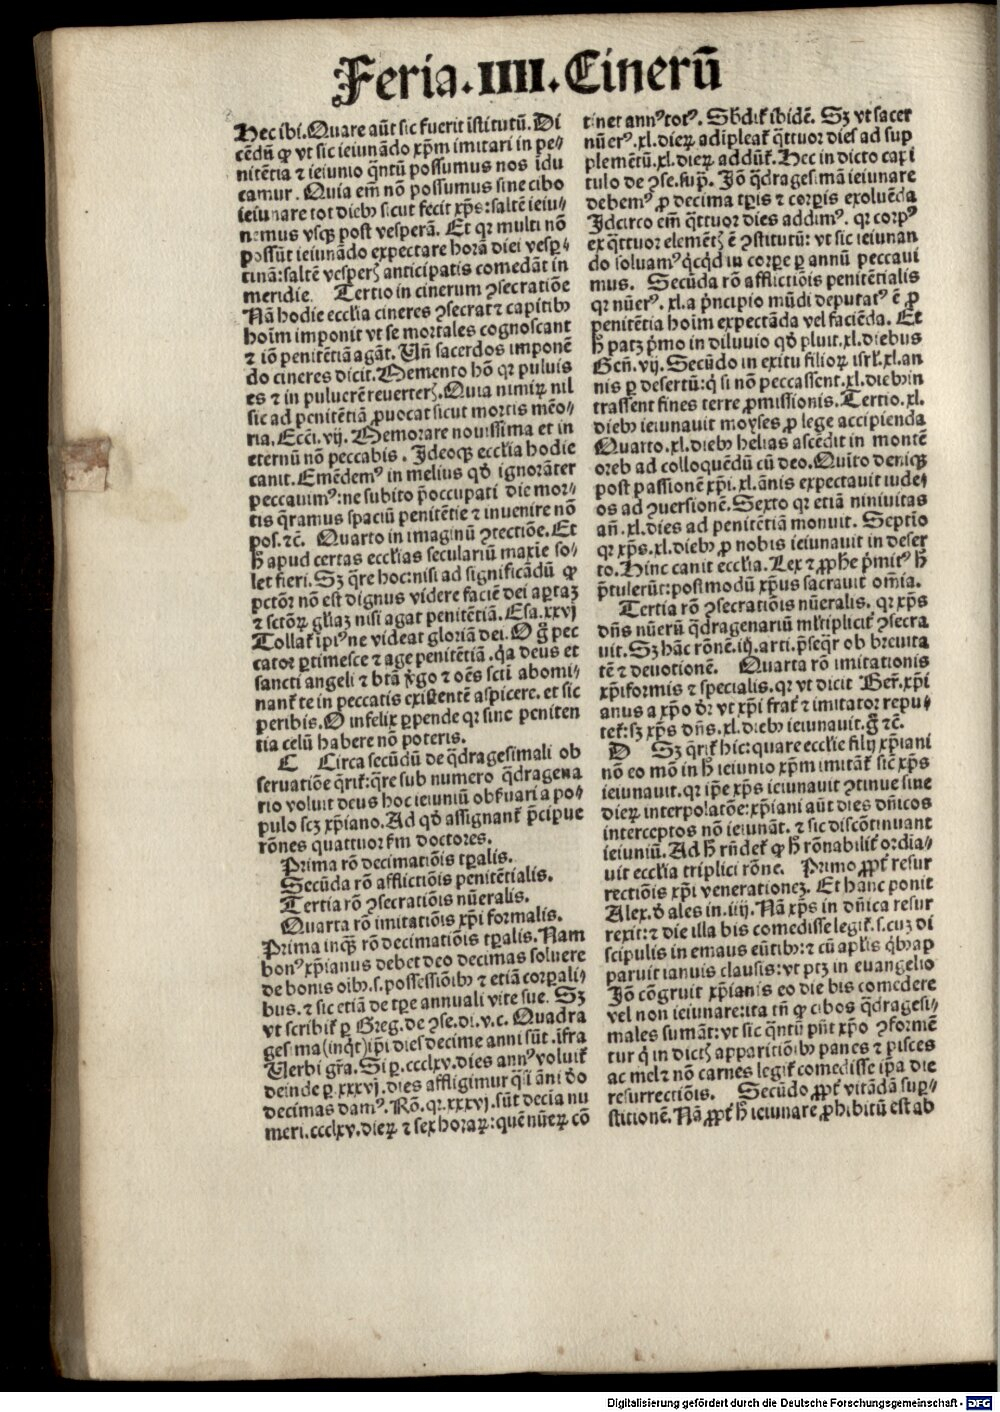 Feria.IIII.Cinerū
Hec ibi. Quare aūt sic fuerit īstitutū. Di
cēdū ꝙ vt sic ieiunādo xp̄m imitari in pe⸗
nitētia ⁊ ieiunio q̄ntū possumus nos idu
camur. Quia em̄ nō possumus sine cibo
ieiunare tot dieb⁹ sicut fecit xp̄s: saltē ieiu⸗
nemus vsqꝫ post vesperā. Et qꝛ multi nō
possūt ieiunādo expectare horā diei vesꝑ⸗
tinā: saltē vesperꝭ anticipatis comedāt in
meridie. Tertio in cinerum ꝯsecratiōe
Nā hodie eccl̄ia cineres ꝯsecrat ⁊ capitib⁹
hoīm imponit vt se mortales cognoscant
⁊ iō penitētiā agāt. Un̄ sacerdos imponē
do cineres dicit. Memento hō qꝛ puluis
es ⁊ in puluerē reuerterꝭ. Quia nimiꝝ nil
sic ad penitētiā ꝓuocat sicut mortis mēo⸗
ria. Ecci. vij. Memorare nouissima et in
eternū nō peccabis. Ideoqꝫ eccl̄ia hodie
canit. Emēdem⁹ in melius qd̄ ignorāter
peccauim⁹: ne subito p̄occupati die mor⸗
tis q̄ramus spaciū penitētie ⁊ inuenire nō
pos. ⁊c̄. Quarto in imaginū ꝯtectiōe. Et
h̄ apud certas eccl̄ias seculariū maxīe so⸗
let fieri. Sꝫ q̄re hoc: nisi ad significādū ꝙ
pctōr nō est dignus videre faciē dei aꝑtaꝫ
⁊ sctōꝝ gl̄iaꝫ nisi agat penitētiā. Esa. xxvj
Tollat̄ īpi⁹ ne videat gloriā dei. O g̊ pec
cator ꝑtimesce ⁊ age penitētiā. q̇a deus et
sancti angeli ⁊ btā v̓go ⁊ oēs scti abomi⸗
nant̄ te in peccatis existentē aspicere. et sic
peribis. O infelix ꝑpende qꝛ sine peniten
tia celū habere nō poteris.
C Circa secūdū de q̄dragesimali ob
seruatiōe q̄rit̄: q̄re sub numero q̄dragena
rio voluit deus hoc ieiuniū obẜuari a po⸗
pulo scꝫ xp̄iano. Ad qd̄ assignant̄ p̄cipue
rōnes quattuor ẜm doctores.
Prima rō decimatiōis tꝑalis.
Secūda rō afflictiōis penitētialis.
Tertia rō ꝯsecratiōis nūeralis.
Quarta rō imitatiōis xp̄i formalis.
Prima inqꝫ rō decimatiōis tꝑalis. Nam
bon⁹ xp̄ianus debet deo decimas soluere
de bonis oib⁹. s. possessiōib⁹ ⁊ etiā corꝑali⸗
bus. ⁊ sic etiā de tꝑe annuali vite sue. Sꝫ
vt scribit̄ ꝑ Greg. de ꝯse. di. v. c. Quadra
gesima (inq̇t) ip̄i dies decime anni sūt. īfra
Uerbi gr̄a. Si ꝑ. ccclxv. dies ann⁹ voluit̄
deinde ꝑ. xxxvj. dies affligimur q̄si āni d̄o
decimas dam⁹. Rō. qꝛ. xxxvj. sūt decīa nu
meri. ccclxv. dieꝝ ⁊ sex horaꝝ: quē nūeꝝ cō
tinet ann⁹ tot⁹. Sb̄dit̄ ibidē. Sꝫ vt sacer
nūer⁹. xl. dieꝝ adipleat̄ q̄ttuor dies ad sup
plemētū. xl. dieꝝ addūt̄. Hec in dicto capi
tulo de ꝯse. sup̄. Iō q̄dragesimā ieiunare
debem⁹ ꝓ decima tꝑis ⁊ corꝑis exoluēda
Idcirco em̄ q̄ttuor dies addim⁹. qꝛ corp⁹
ex q̄ttuor elemētꝭ ē ꝯstitutū: vt sic ieiunan
do soluam⁹ q̇cq̇d in corꝑe ꝑ annū peccaui
mus. Secūda rō afflictiōis penitētialis
qꝛ nūer⁹. xl. a p̄ncipio mūdi deputat⁹ ē ꝓ
penitētia hoīm expectāda vel faciēda. Et
h̄ patꝫ p̄mo in diluuio qd̄ pluit. xl. diebus
Gen̄. vij. Secūdo in exitu filioꝝ isrl̄. xl. an
nis ꝑ desertū: q̇ si nō peccassent. xl. dieb⁹ in
trassent fines terre ꝓmissionis. Tertio. xl.
dieb⁹ ieiunauit moyses ꝓ lege accipienda
Quarto. xl. dieb⁹ helias ascēdit in montē
oreb ad colloquēdū cū deo. Quīto deniqꝫ
post passionē xp̄i. xl. ānis expectauit iude⸗
os ad ꝯuersionē. Sexto qꝛ etiā niniuitas
an̄. xl. dies ad penitētiā monuit. Septīo
qꝛ xp̄s. xl. dieb⁹ ꝓ nobis ieiunauit in deser
to. Hinc canit eccl̄ia. Lex ⁊ ꝓph̄e p̄mit⁹ h̄
p̄tulerūt: postmodū xp̄us sacrauit om̄ia.
Tertia rō ꝯsecratiōis nūeralis. qꝛ xp̄s
dn̄s nūerū q̄dragenariū ml̄tiplicit̄ ꝯsecra
uit. Sꝫ hāc rōnē. iij. arti. ꝑseq̄r ob breuita
tē ⁊ deuotionē. Quarta rō imitationis
xp̄iformis ⁊ specialis. qꝛ vt dicit Ber̄. xp̄i
anus a xp̄o dr̄ vt xp̄i frat̄ ⁊ imitator repu⸗
tet̄: sꝫ xp̄s dn̄s. xl. dieb⁹ ieiunauit. g̊ ⁊c̄.
D Sꝫ q̄rit̄ hic: quare eccl̄ie filij xp̄iani
nō eo mō in h̄ ieiunio xp̄m imitāt̄ sic̄ xp̄s
ieiunauit. qꝛ ip̄e xp̄s ieiunauit ꝯtinue sine
dieꝝ interpolatōe: xp̄iani aūt dies dn̄icos
interceptos nō ieiunāt. ⁊ sic discōtinuant
ieiuniū. Ad h̄ rn̄det̄ ꝙ h̄ rōnabilit̄ ordīa⸗
uit eccl̄ia triplici rōne. Primo ꝓpt̄ resur
rectiōis xp̄i venerationeꝫ. Et hanc ponit
Alex. d̓ ales in. iiij. Nā xp̄s in dn̄ica resur
rexit: ⁊ die illa bis comedisse legit̄. s. cuꝫ di
scipulis in emaus eūtib⁹: ⁊ cū apl̄is q̇b⁹ ap
paruit ianuis clausis: vt ptꝫ in euangelio
Iō cōgruit xp̄ianis eo die bis comedere
vel non ieiunare: ita tn̄ ꝙ cibos q̄dragesi⸗
males sumāt: vt sic q̄ntū pn̄t xp̄o ꝯformē
tur q̇ in dictꝭ apparitiōib⁹ panes ⁊ pisces
ac mel ⁊ nō carnes legit̄ comedisse ip̄a die
resurrectiōis. Secūdo ꝓpt̄ vitādā suꝑ⸗
stitionē. Nā ꝓpt̄ h̄ ieiunare ꝓhibitū est ab
Digitalisierung gefördert durch die Deutsche Forschungsgemeinschaft - DFG